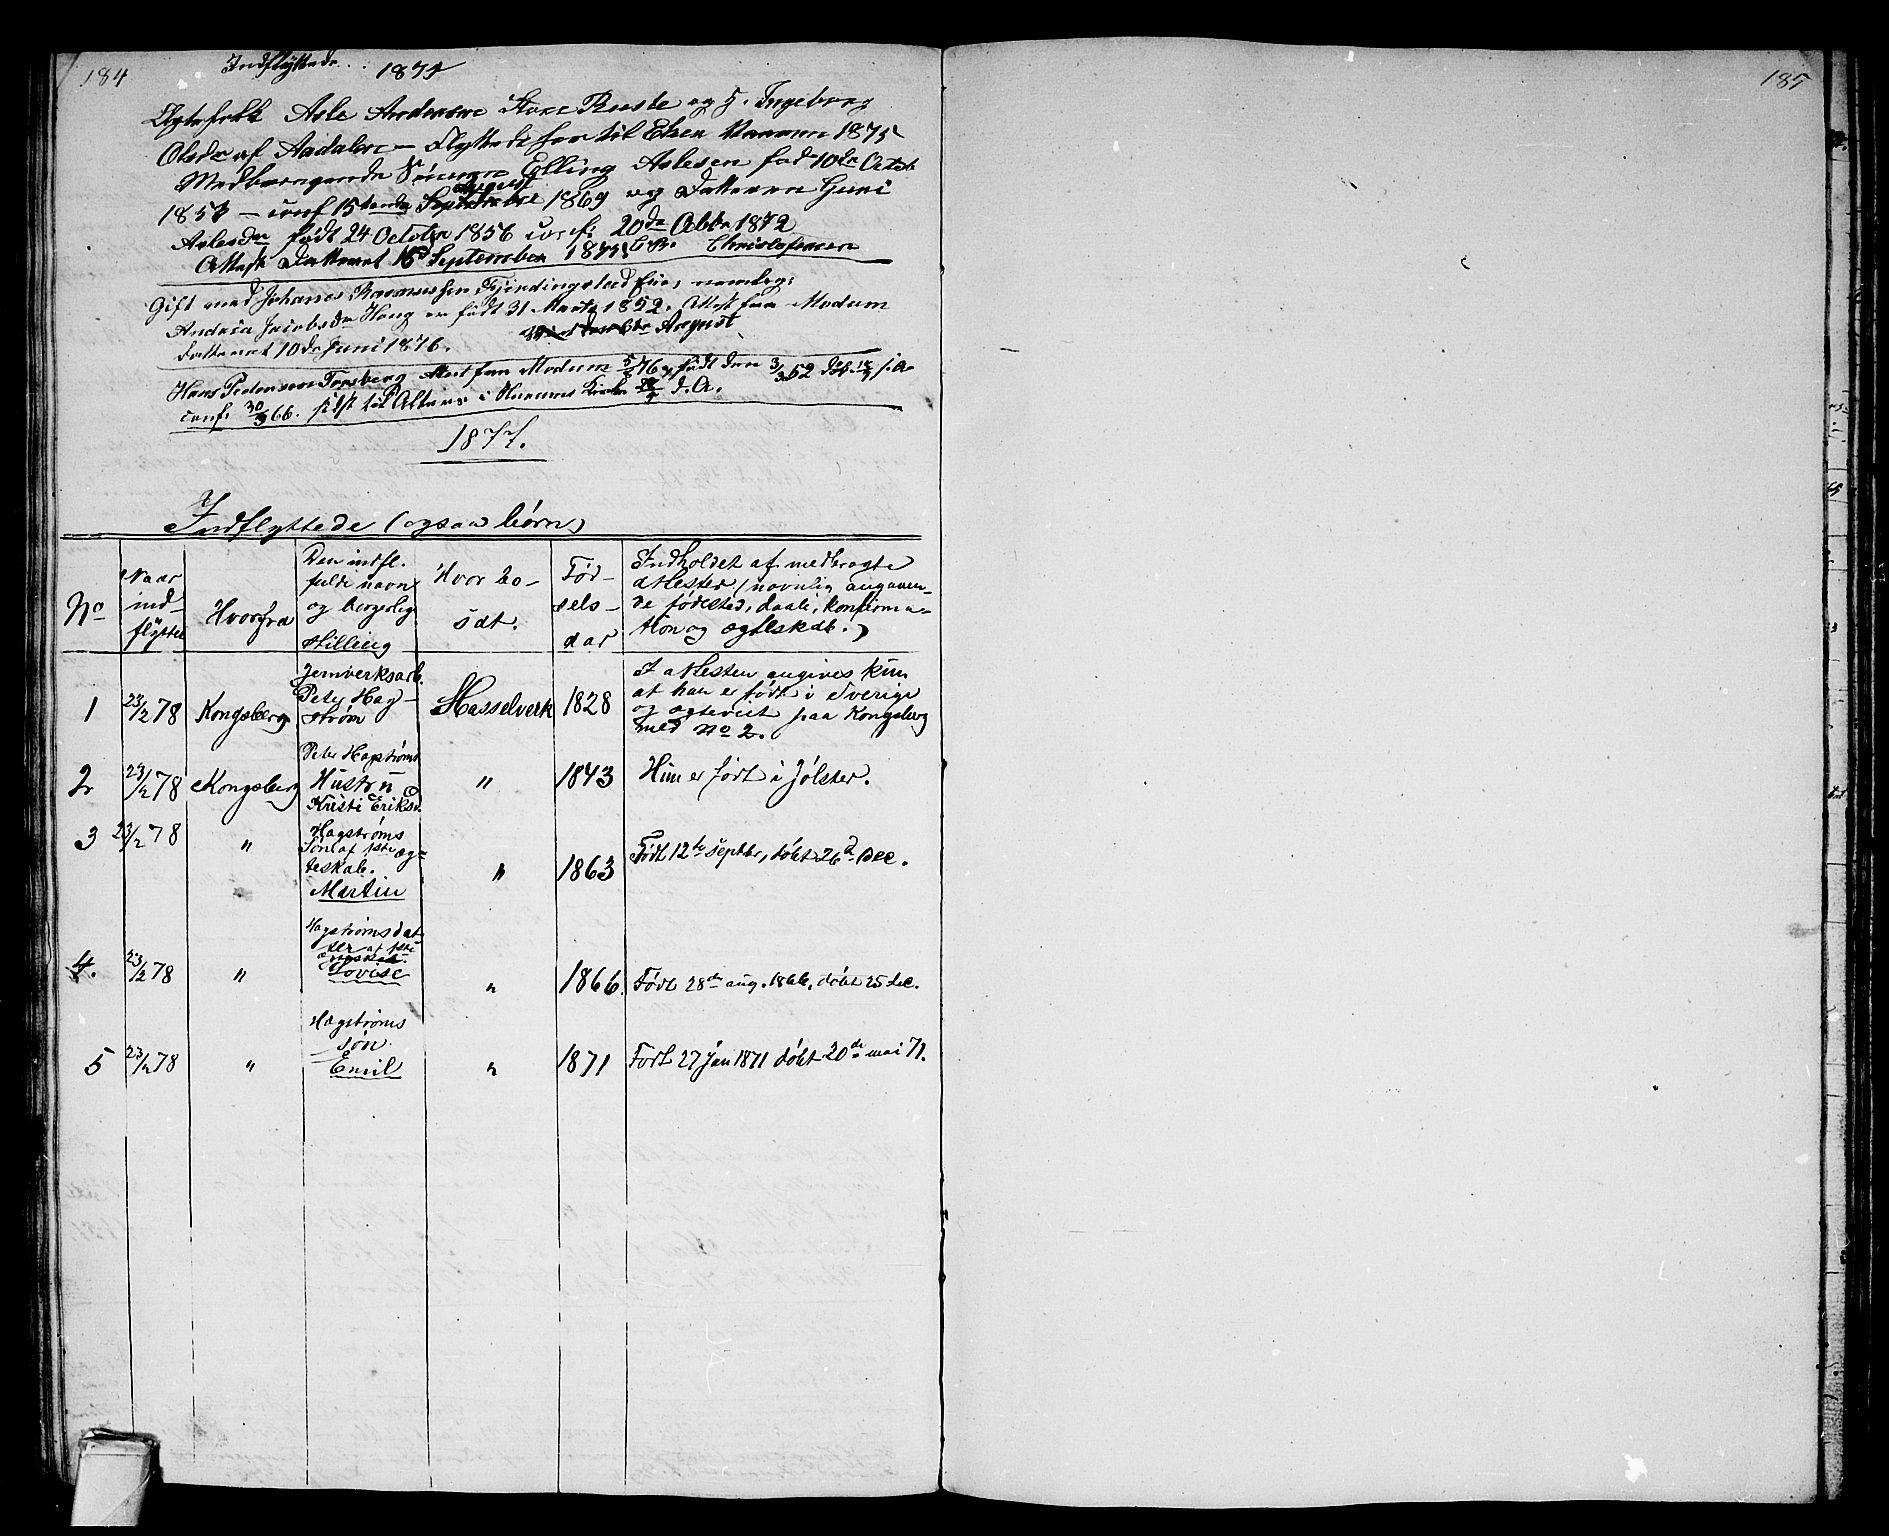 184
Indflyttede 1874
Ægtefolk Asle Andersen Store Ruste og h. Ingeborg
Olsdr af Aadalen – flyttede her til 1875
Medbringende Sönnen Elling Aslesen fød 10de Octob
1853 – conf 15 August 1869 og Datteren Guri
Aslesdr född 24 October 1856 conf: 20de Octbr 1872
Attest Datteret 16 September 1875 Christofersen
Gift med Johanes Rasmussen, Fjerdingstad
Andrea Jacobsdr Haug er född 31 Marts 1852. Attest fra Modum
datteret 10de Juni 1876. August
Hans Pedersen Torsberg Attest fra Modum 5/8 76, född den 3/3 52 döbt
conf. 30/9 66. sidst til Alters i Kirke d. A.
1877.
Indflyttede (ogsaa børn)
No | Naar ind-flyttet | Hvorfra | Den indfl. fulde navn og borgerlig stilling | Hvor bo-sat. | Fød-sels-aar | Indholdet af medbragte attester (navnlig angaaen-de fødested, daab, konfirma-tion og ægteskab.)
1 | 23/2 78 | Kongsberg | Jernverksarb. Peter Hag-strøm | Hasselverk | 1828 | I attesten angives kun at han er født i Sverige og ægteviet paa Kongsberg med No 2.
2 | 23/2 78 | Kongsberg | Peter Hagstrøms Hustru Kristi Eriksd. | " | 1843 | Hun er født i Jølster.
3 | 23/2 78 | " | Hagstrøms Søn af 1ste æg-teskab. Martin | " | 1863 | Født 12te septbr, døbt 26d Dec.
4. | 23/2 78 | " | Hagstrøms dat-ter af 1ste ægteskab. Lovise | " | 1866. | Født 28de aug. 1866, døbt 25 dec.
5 | 23/2 78 | " | Hagstrøms søn Emil | " | 1871 | Født 27 Jan 1871 døbt 20de mai 71.
185